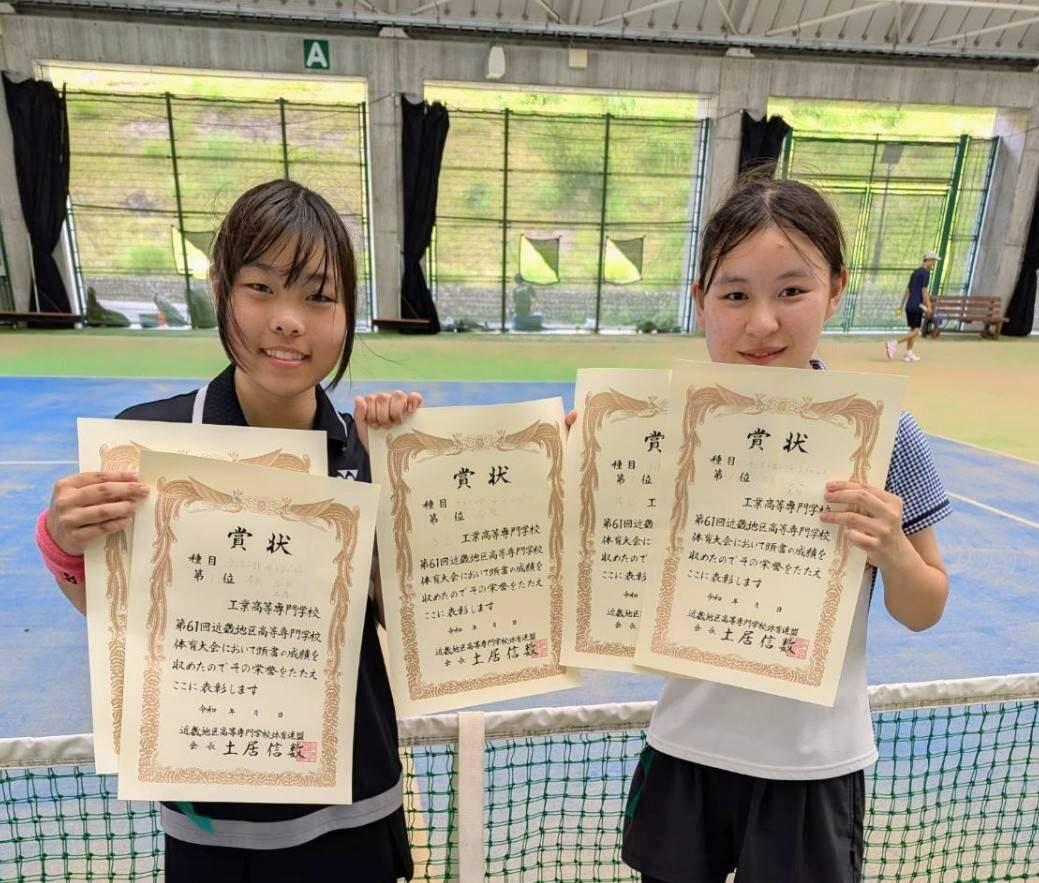 A
賞状
種目
第 位
工業高等専門学校
第61回近畿地区高等専門学校
体育大会において頭書の成績を
収めたのでその栄誉をたたえ
ここに表彰します
令和 年 月 日
近畿地区高等専門学校体育連盟
会長 土居信数
賞状
種目
第 位
工業高等専門学校
第61回近畿地区高等専門学校
体育大会において頭書の成績を
収めたのでその栄誉をたたえ
ここに表彰します
令和 年 月 日
近畿地区高等専門学校体育連盟
会長 土居信数
賞
種目
第 位
工
第61回近畿
体育大会に
収めたので
ここに表彰
令和
近畿地区
会長
賞状
種目
第 位
工業高等専門学校
第61回近畿地区高等専門学校
体育大会において頭書の成績を
収めたのでその栄誉をたたえ
ここに表彰します
令和 年 月 日
近畿地区高等専門学校体育連盟
会長 土居信数